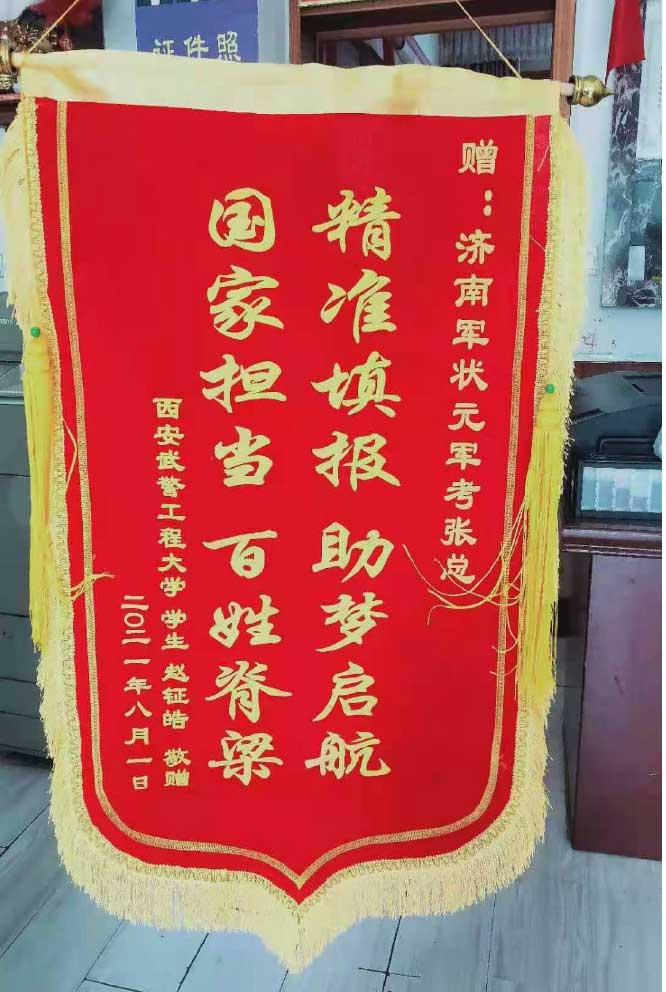 证件照
赠：济南军状元军考张总
精准填报 助梦启航
国家担当 百姓脊梁
西安武警工程大学 学生 赵钲皓 敬赠
二〇二一年八月一日